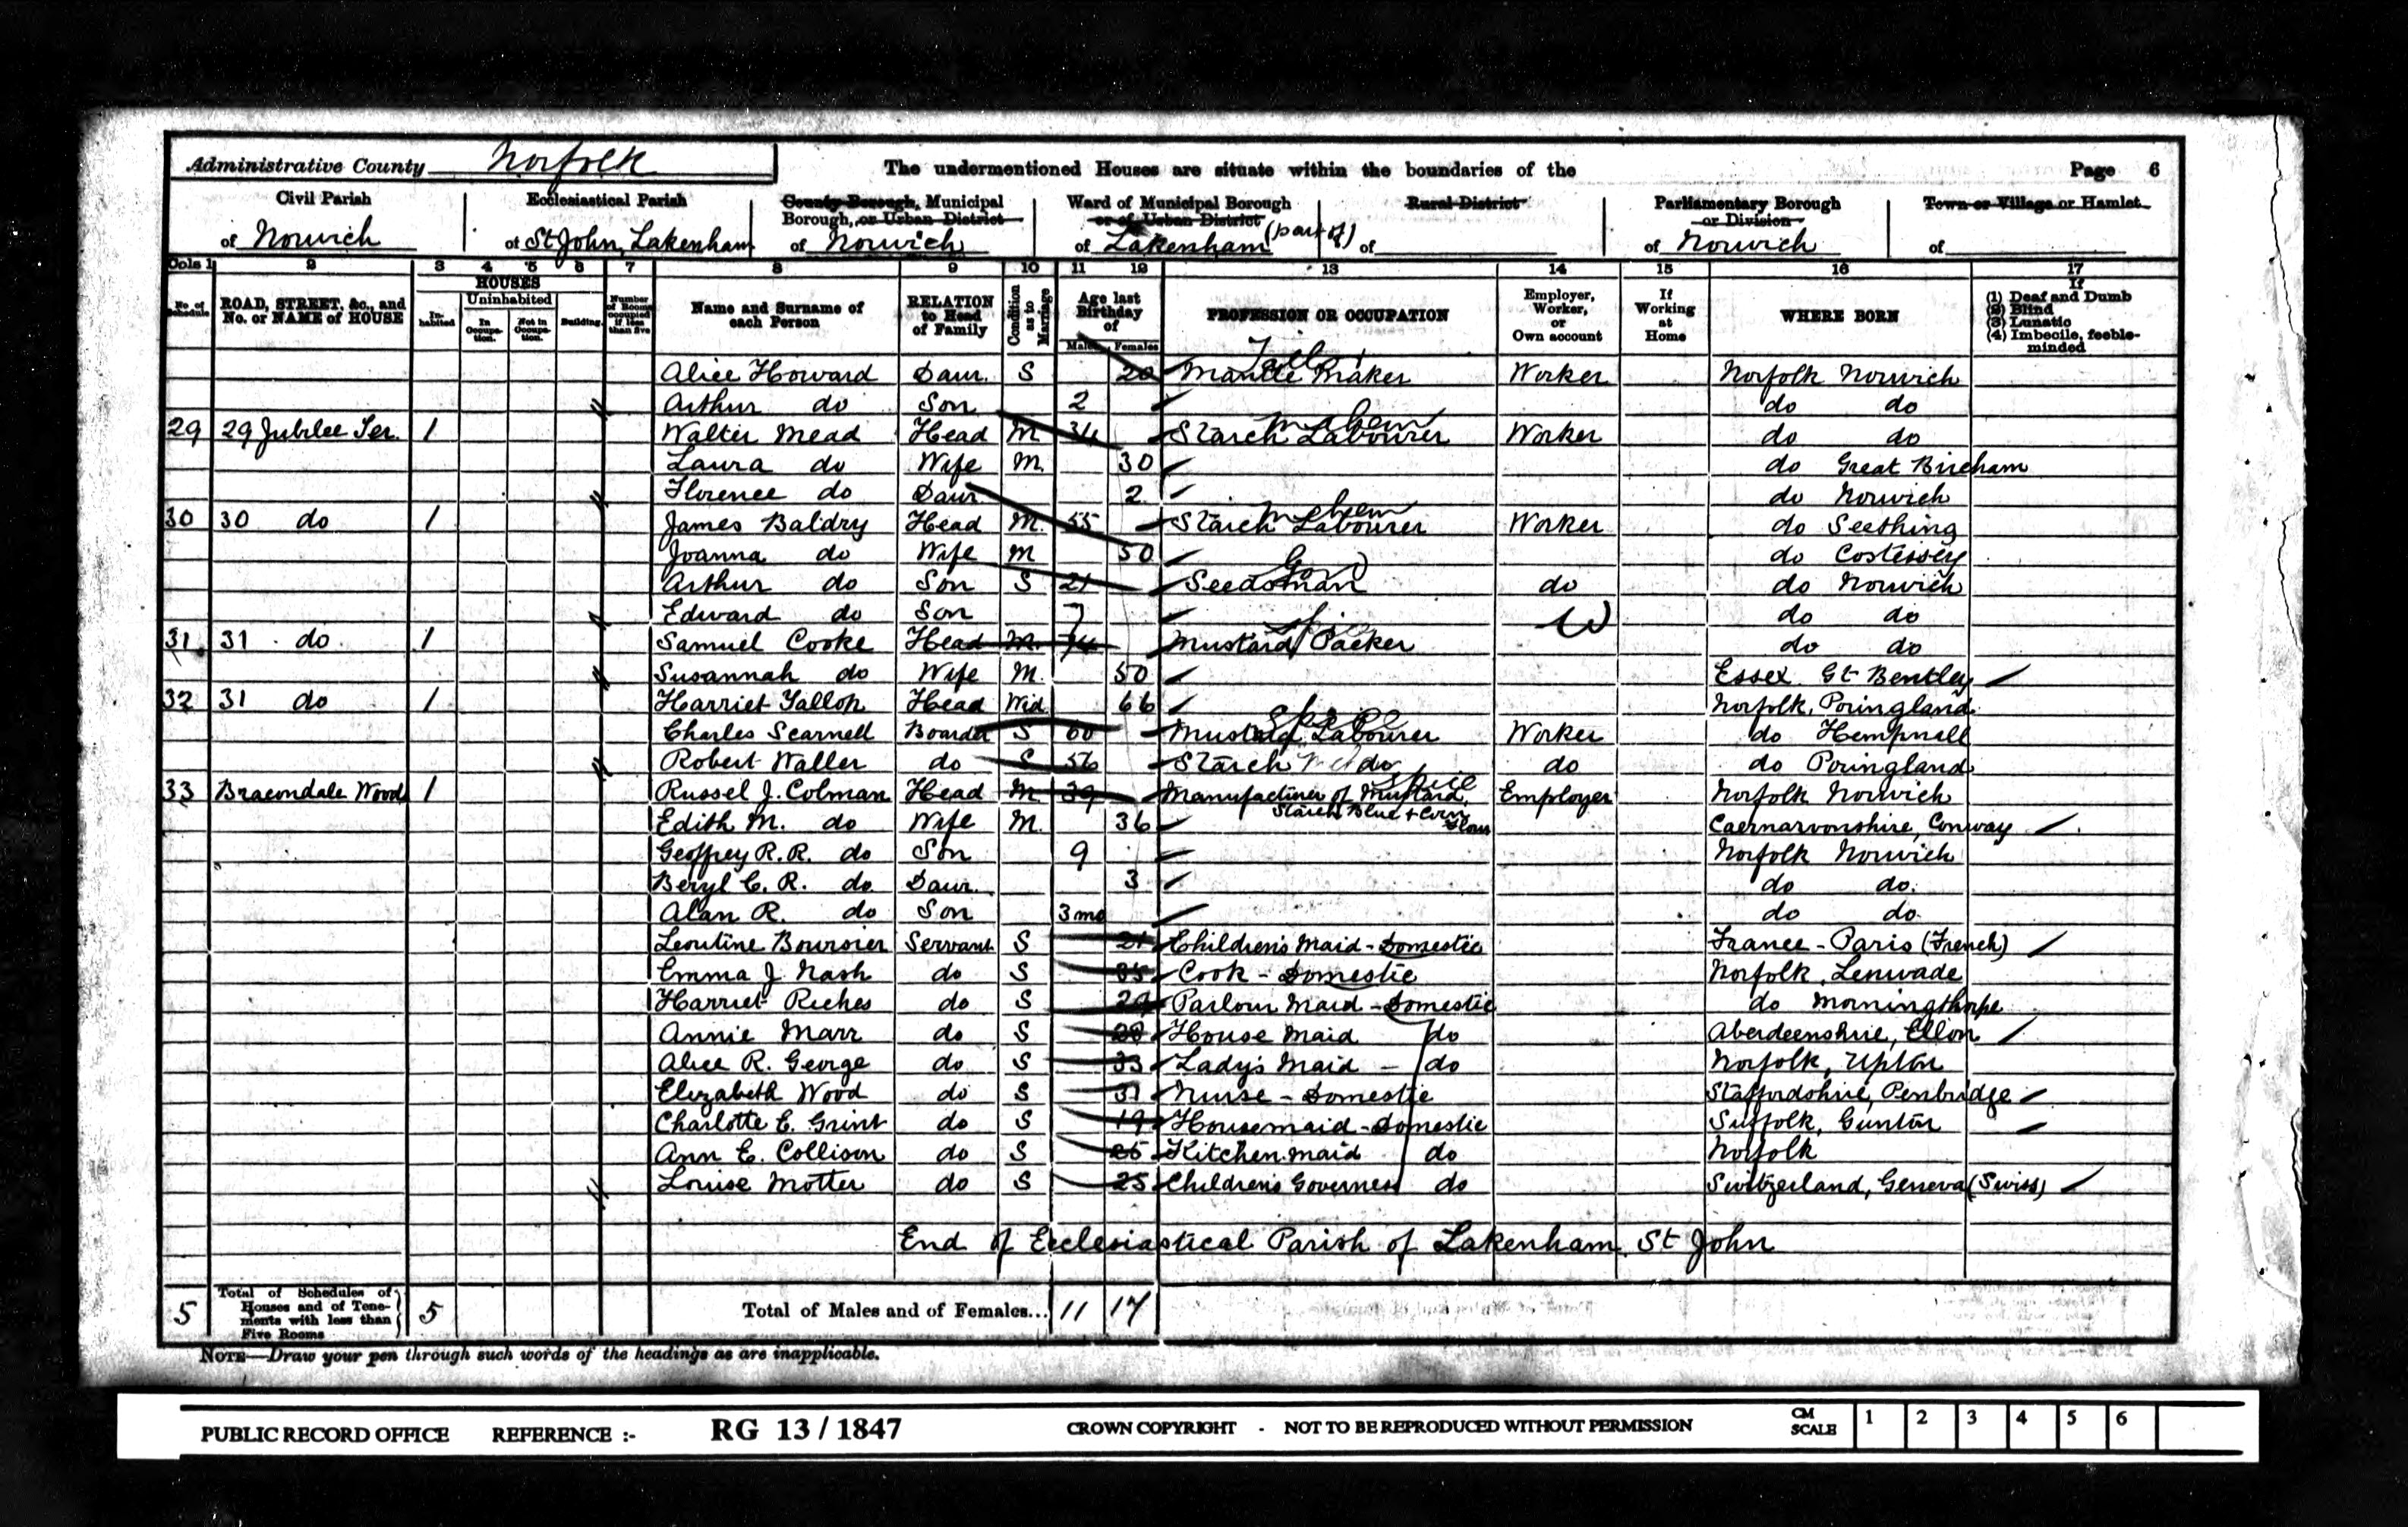 Administrative County Norfolk The undermentioned Houses are situate within the boundaries of the Page 6
Civil Parish of Norwich
Ecclesiastical Parish of St John, Lakenham
County Borough, Municipal Borough, or Urban District of Norwich
Ward of Municipal Borough or of Urban District of Lakenham (part of)
Rural District of
Parliamentary Borough or Division of Norwich
Town or Village or Hamlet of
Cols 1 2 3 4 5 6 7 8 9 10 11 12 13 14 15 16 17
No. of Schedule
ROAD, STREET, &c., and No. or NAME of HOUSE
HOUSES
Inhabited
Uninhabited
In Occupation.
Not in Occupation.
Building.
Number of Rooms occupied if less than five
Name and Surname of each Person
RELATION to Head of Family
Condition as to Marriage
Age last Birthday of
Males Females
PROFESSION OR OCCUPATION
Employer, Worker, or Own account
If Working at Home
WHERE BORN
If
(1) Deaf and Dumb
(2) Blind
(3) Lunatic
(4) Imbecile, feeble-minded
Tailor
Alice Howard Daur. S 20 Mantle Maker Worker Norfolk Norwich
Arthur do Son 2 do do
29 29 Jubilee Ter. 1 Walter Mead Head M 34 Starch Labourer Worker do do
Laura do Wife M. 30 do Great Bircham
Florence do Daur. 2 do Norwich
30 30 do 1 James Baldry Head M. 55 Starch Labourer Worker do Seething
Joanna do Wife M 50 do Costessey
Arthur do Son S 21 Seedsman do do Norwich
Edward do Son 7 do do
W
31 31 do 1 Samuel Cooke Head M. 74 Mustard Packer do do
Susannah do Wife M. 50 Essex Gt Bentley
32 31 do 1 Harriet Yallop Head Wid 66 Norfolk, Poringland
Spice
Charles Scarnell Boarder S 60 Mustard Labourer Worker do Hempnall
Robert Waller do S 56 Starch do do do Poringland
Spice
33 Bracondale Wood 1 Russel J. Colman Head M 39 Manufacturer of Mustard, Starch Blue & Corn Flour Employer Norfolk Norwich
Edith M. do Wife M. 36 Caernarvonshire, Conway
Geoffrey R. R. do Son 9 Norfolk Norwich
Beryl C. R. do Daur. 3 do do.
Alan R. do Son 3 mo do do
Leontine Boursier Servant S 21 Children's Maid - Domestic France - Paris (French)
Emma J. Nash do S 35 Cook - Domestic Norfolk, Lenwade
Harriet Riches do S 29 Parlour Maid - Domestic do Morningthorpe
Annie Marr do S 28 House Maid do Aberdeenshire, Ellon
Alice R. George do S 33 Lady's Maid - do Norfolk, Upton
Elizabeth Wood do S 31 Nurse - Domestic Staffordshire, Penbridge
Charlotte E. Grint do S 19 Housemaid - Domestic Suffolk, Gunton
Ann E. Collison do S 25 Kitchen maid do Norfolk
Louise Motter do S 25 Children's Governess do Switzerland, Geneva (Swiss)
End of Ecclesiastical Parish of Lakenham St John
5 Total of Schedules of Houses and of Tenements with less than Five Rooms 5 Total of Males and of Females... 11 17
NOTE—Draw your pen through such words of the headings as are inapplicable.
PUBLIC RECORD OFFICE REFERENCE :- RG 13 / 1847 CROWN COPYRIGHT - NOT TO BE REPRODUCED WITHOUT PERMISSION CM SCALE 1 2 3 4 5 6